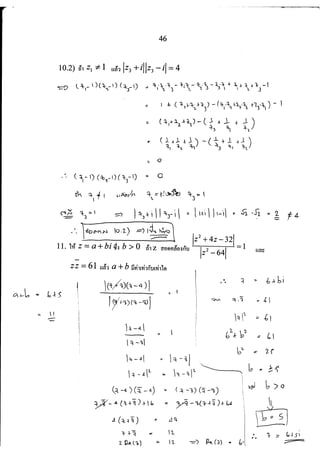 46
10.2) ถ้า z₁ ≠ 1 แล้ว |z₃ + i||z₃ − i| = 4
⇒ (z₁-1)(z₂-1)(z₃-1) = z₁z₂z₃ - z₁z₂ - z₂z₃ - z₃z₁ + z₁ + z₂ + z₃ - 1
= 1 + (z₁+z₂+z₃) - (z₁z₂+z₂z₃+z₃z₁) - 1
= (z₁+z₂+z₃) - (1/z₃ + 1/z₁ + 1/z₂)
= (1/z₁ + 1/z₂ + 1/z₃) - (1/z₃ + 1/z₁ + 1/z₂)
= 0
∴ (z₁-1)(z₂-1)(z₃-1) = 0
ถ้า z₁ ≠ 1 z₂ = 1 หรือ z₃ = 1
z₃ = 1 ⇒ |z₃+i||z₃-i| = |1+i||1-i| = √2 · √2 = 2 ≠ 4
∴ 10.2) ⇒
11. ให้ z = a + bi ซึ่ง b > 0 ถ้า z สอดคล้องกับ |z² + 4z − 32| / |z² − 64| = 1 และ
zz̄ = 61 แล้ว a + b มีค่าเท่ากับเท่าใด
|(z+8)(z-4)| / |(z+8)(z-8)| = 1
|z-4| / |z-8| = 1
|z-4| = |z-8|
|z-4|² = |z-8|²
(z-4)(z̄-4) = (z-8)(z̄-8)
zz̄ - 4(z+z̄) + 16 = zz̄ - 8(z+z̄) + 64
4(z+z̄) = 48
z+z̄ = 12
2 Re(z) = 12 ⇒ Re(z) = 6
∴ z = 6+bi
z·z̄ = 61
|z|² = 61
6² + b² = 61
b² = 25
b = ±5
b > 0
b = 5
∴ z = 6+5i
a+b = 6+5
= 11